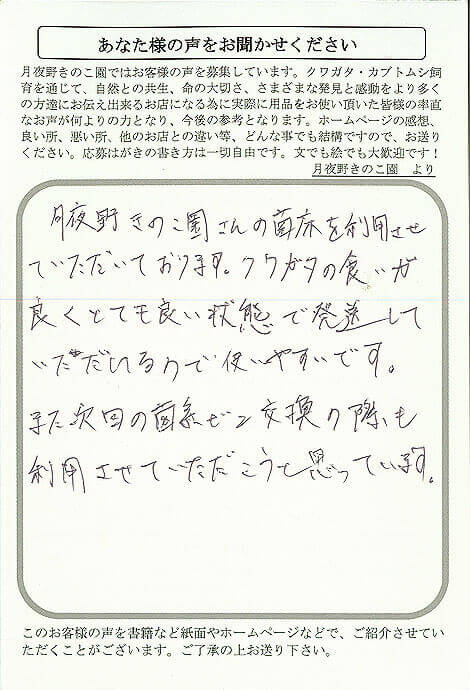 あなた様の声をお聞かせください
月夜野きのこ園ではお客様の声を募集しています。クワガタ・カブトムシ飼
育を通じて、自然との共生、命の大切さ、さまざまな発見と感動をより多く
の方達にお伝え出来るお店になる為に実際に用品をお使い頂いた皆様の率直
なお声が何よりの力となり、今後の参考となります。ホームページの感想、
良い所、悪い所、他のお店との違い等、どんな事でも結構ですので、お送り
ください。応募はがきの書き方は一切自由です。文でも絵でも大歓迎です！
月夜野きのこ園　より
月夜野きのこ園さんの菌床を利用させ
ていただいております。クワガタの食いが
良くとても良い状態で発送して
いただだいるので使いやすいです。
また次回の菌糸ビン交換の際も
利用させていただこうと思っています。
このお客様の声を書籍など紙面やホームページなどで、ご紹介させてい
ただくことがございます。ご了承の上お送り下さい。